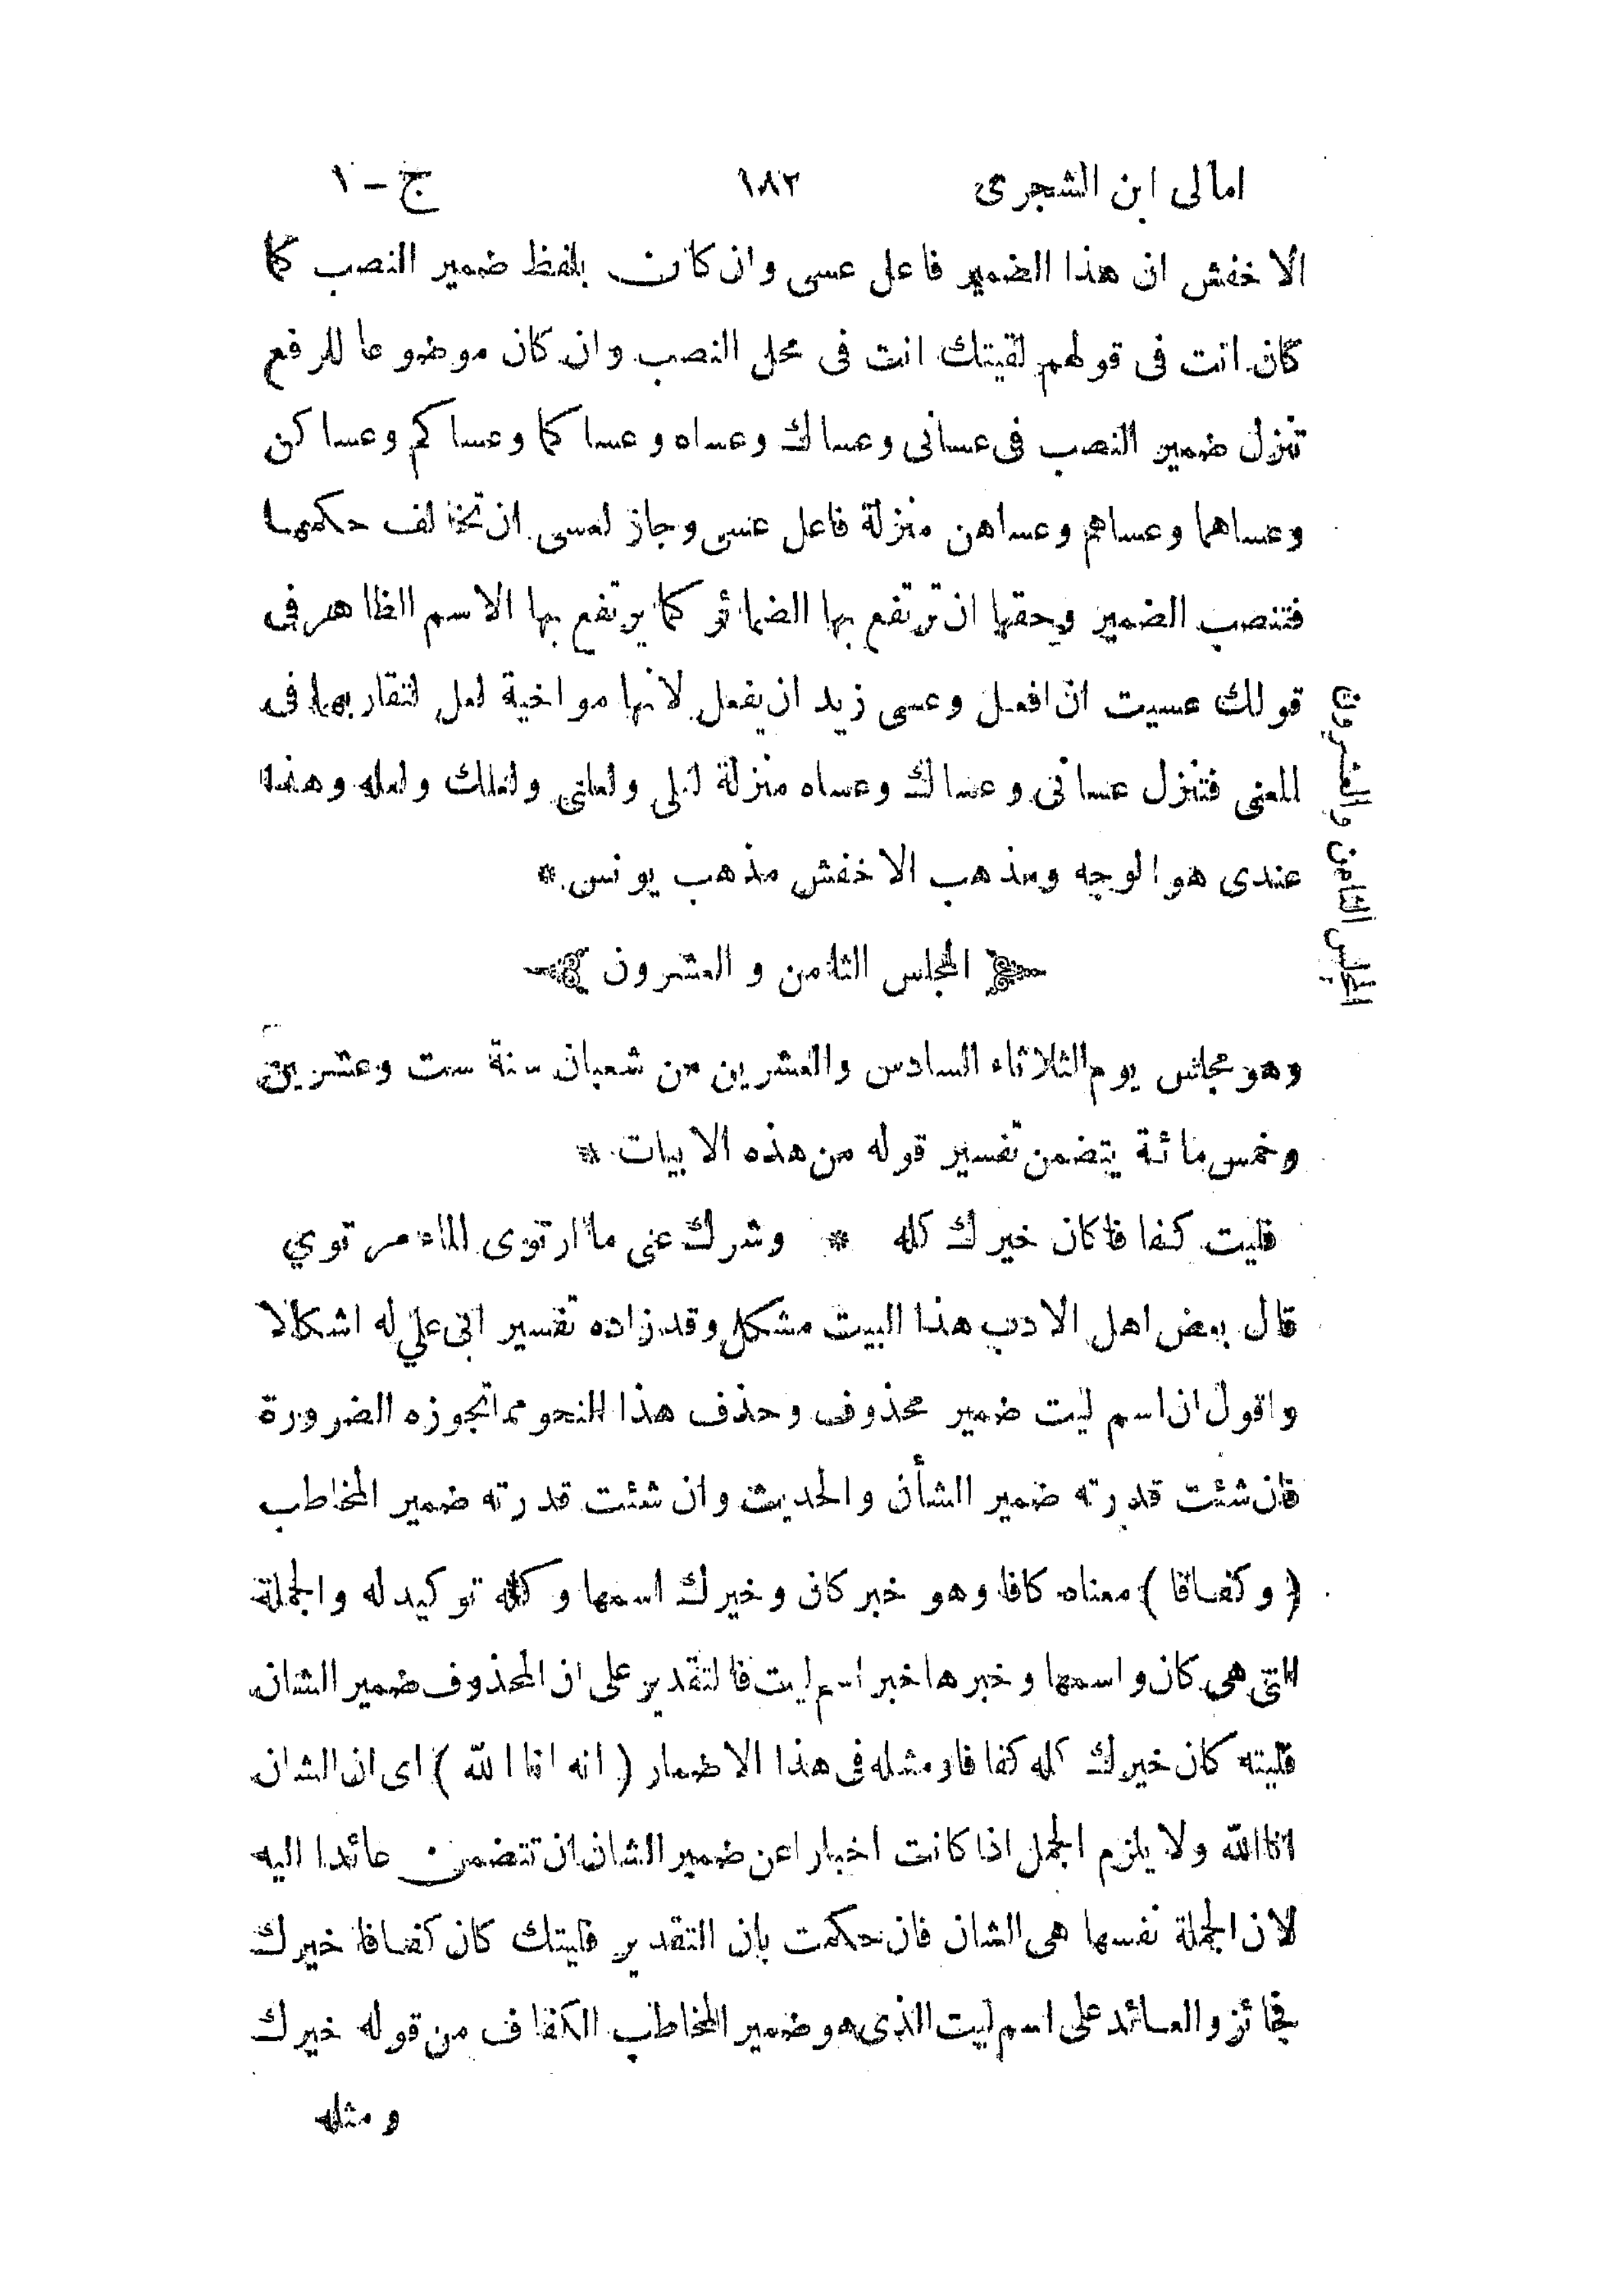 امالى ابن الشجرى ١٨٢ ج - ١
الاخفش ان هذا الضمير فاعل عسى وان كان بلفظ ضمير النصب كما
كان انت فى قولهم لقيتك انت فى محل النصب وان كان موضوعا للرفع
تنزل ضمير النصب فى عسانى وعساك وعساه وعساكما وعساكم وعساكن
وعساهما وعساهم وعساهن منزلة فاعل عسى وجاز لعسى ان تخالف حكمها
فتنصب الضمير وحقها ان ترتفع بها الضمائر كما يرتفع بها الاسم الظاهر فى
قولك عسيت ان افعل وعسى زيد ان يفعل لانها مواخية لعل لتقاربهما فى
المعنى فتنزل عسانى وعساك وعساه منزلة لعلى ولعلنى ولعلك ولعله وهذا
عندى هو الوجه ومذهب الاخفش مذهب يونس *
المجلس الثامن والعشرون
المجلس الثامن والعشرون
وهو مجلس يوم الثلاثاء السادس والعشرين من شعبان سنة ست وعشرين
وخمس مائة يتضمن تفسير قوله من هذه الابيات *
فليت كفافا كان خيرك كله * وشرك عنى ما ارتوى الماء مرتوي
قال بعض اهل الادب هذا البيت مشكل وقد زاده تفسير ابى علي له اشكالا
واقول ان اسم ليت ضمير محذوف وحذف هذا النحو مما تجوزه الضرورة
فان شئت قدرته ضمير الشأن والحديث وان شئت قدرته ضمير المخاطب
( وكفافا ) معناه كافا وهو خبر كان وخيرك اسمها وكله توكيد له والجملة
التى هى كان واسمها وخبرها خبر اسم ليت فالتقدير على ان المحذوف ضمير الشان
فليته كان خيرك كله كفافا ومثله فى هذا الاضمار ( انه انا الله ) اى ان الشان
انا الله ولا يلزم الجمل اذا كانت اخبارا عن ضمير الشان ان تتضمن عائدا اليه
لان الجملة نفسها هى الشان فان حكمت بان التقدير فليتك كان كفافا خيرك
فجائز والعائد على اسم ليت الذى هو ضمير المخاطب الكفاف من قوله خيرك
ومثله